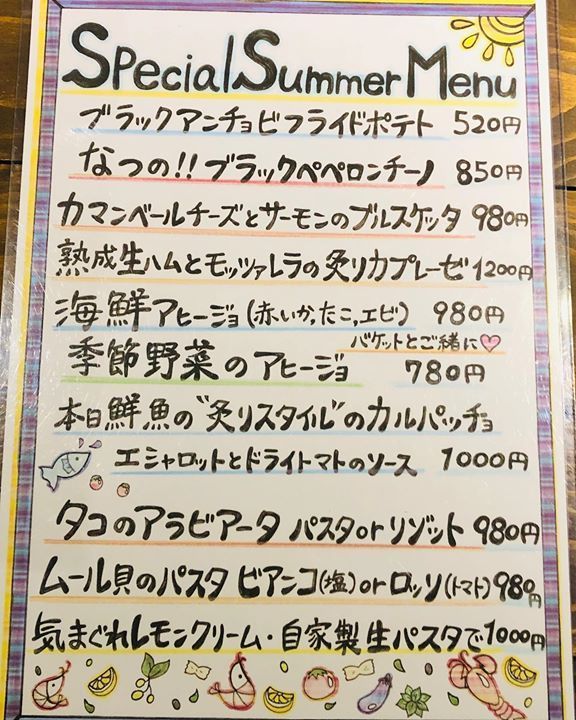 Special Summer Menu
ブラックアンチョビフライドポテト 520円
なつの!! ブラックペペロンチーノ 850円
カマンベールチーズとサーモンのブルスケッタ 980円
熟成生ハムとモッツァレラの炙りカプレーゼ 1200円
海鮮アヒージョ(赤いか,たこ,エビ) 980円
バケットとご緒に♡
季節野菜のアヒージョ 780円
本日鮮魚の"炙りスタイル"のカルパッチョ
エシャロットとドライトマトのソース 1000円
タコのアラビアータ パスタorリゾット 980円
ムール貝のパスタ ビアンコ(塩)orロッソ(トマト) 980円
気まぐれレモンクリーム・自家製生パスタで 1000円